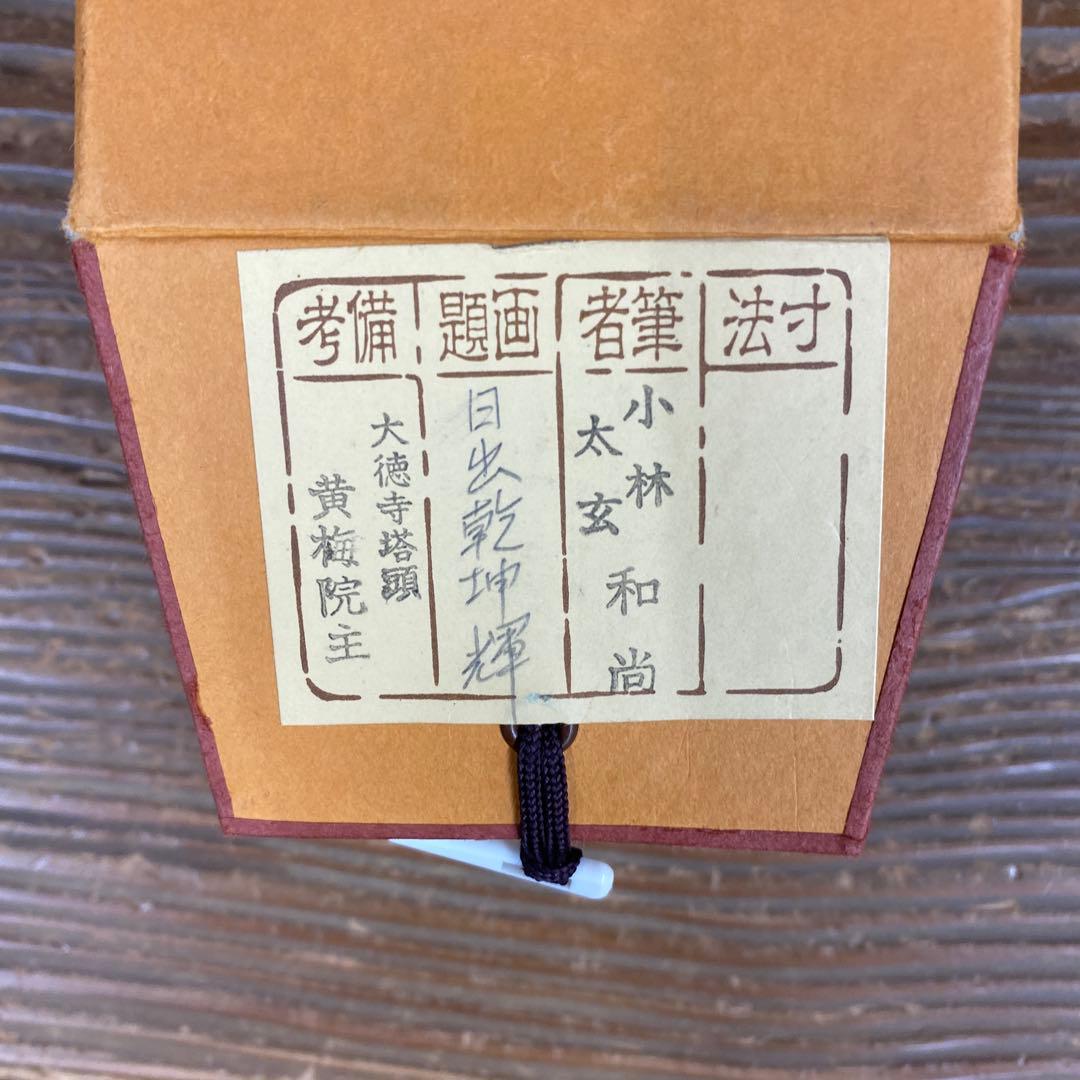 寸法
筆者
小林
太玄
和尚
画題
日出乾坤輝
備考
大徳寺塔頭
黄梅院主